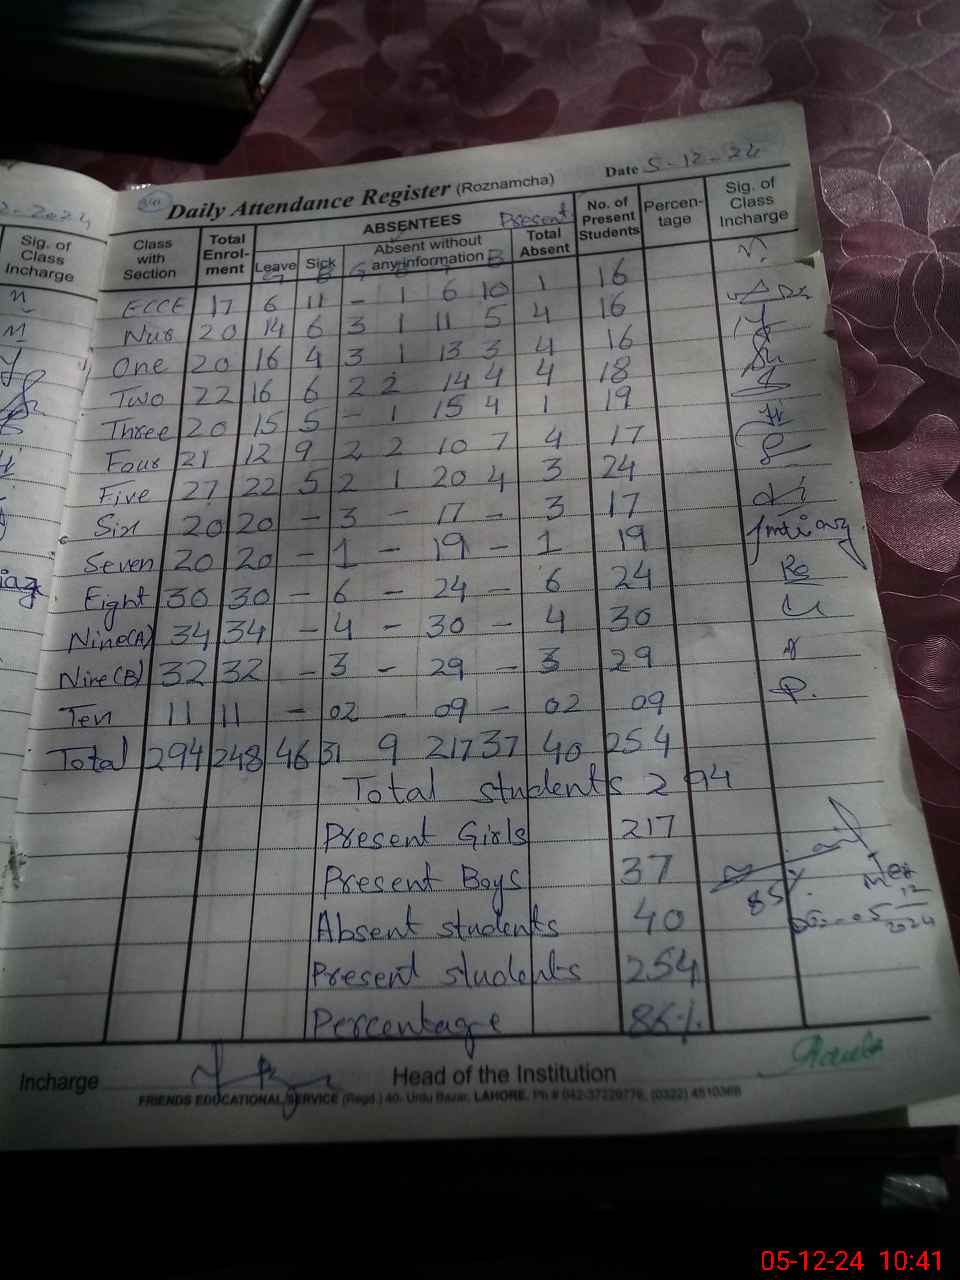 Daily Attendance Register (Roznamcha)
Date 5-12-24
Class with Section Total Enrol-ment ABSENTEES Present No. of Present Students Percen-tage Sig. of Class Incharge
Leave Sick Absent without any information Total Absent
G B G B
ECCE 17 6 11 - 1 6 10 1 16
Nur 20 14 6 3 1 11 5 4 16
One 20 16 4 3 1 13 3 4 16
Two 22 16 6 2 2 14 4 4 18
Three 20 15 5 - 1 15 4 1 19
Four 21 12 9 2 2 10 7 4 17
Five 27 22 5 2 1 20 4 3 24
Six 20 20 - 3 - 17 - 3 17
Seven 20 20 - 1 - 19 - 1 19
Eight 30 30 - 6 - 24 - 6 24
Nine(A) 34 34 - 4 - 30 - 4 30
Nine(B) 32 32 - 3 - 29 - 3 29
Ten 11 11 - 02 - 09 - 02 09
Total 294 248 46 31 9 217 37 40 254
Total students 294
Present Girls 217
Present Boys 37
Absent students 40
Present students 254
Percentage 86%
Sig. of Class Incharge
Incharge
Head of the Institution
FRIENDS EDUCATIONAL SERVICE (Regd.) 40- Urdu Bazar, LAHORE.
05-12-24 10:41